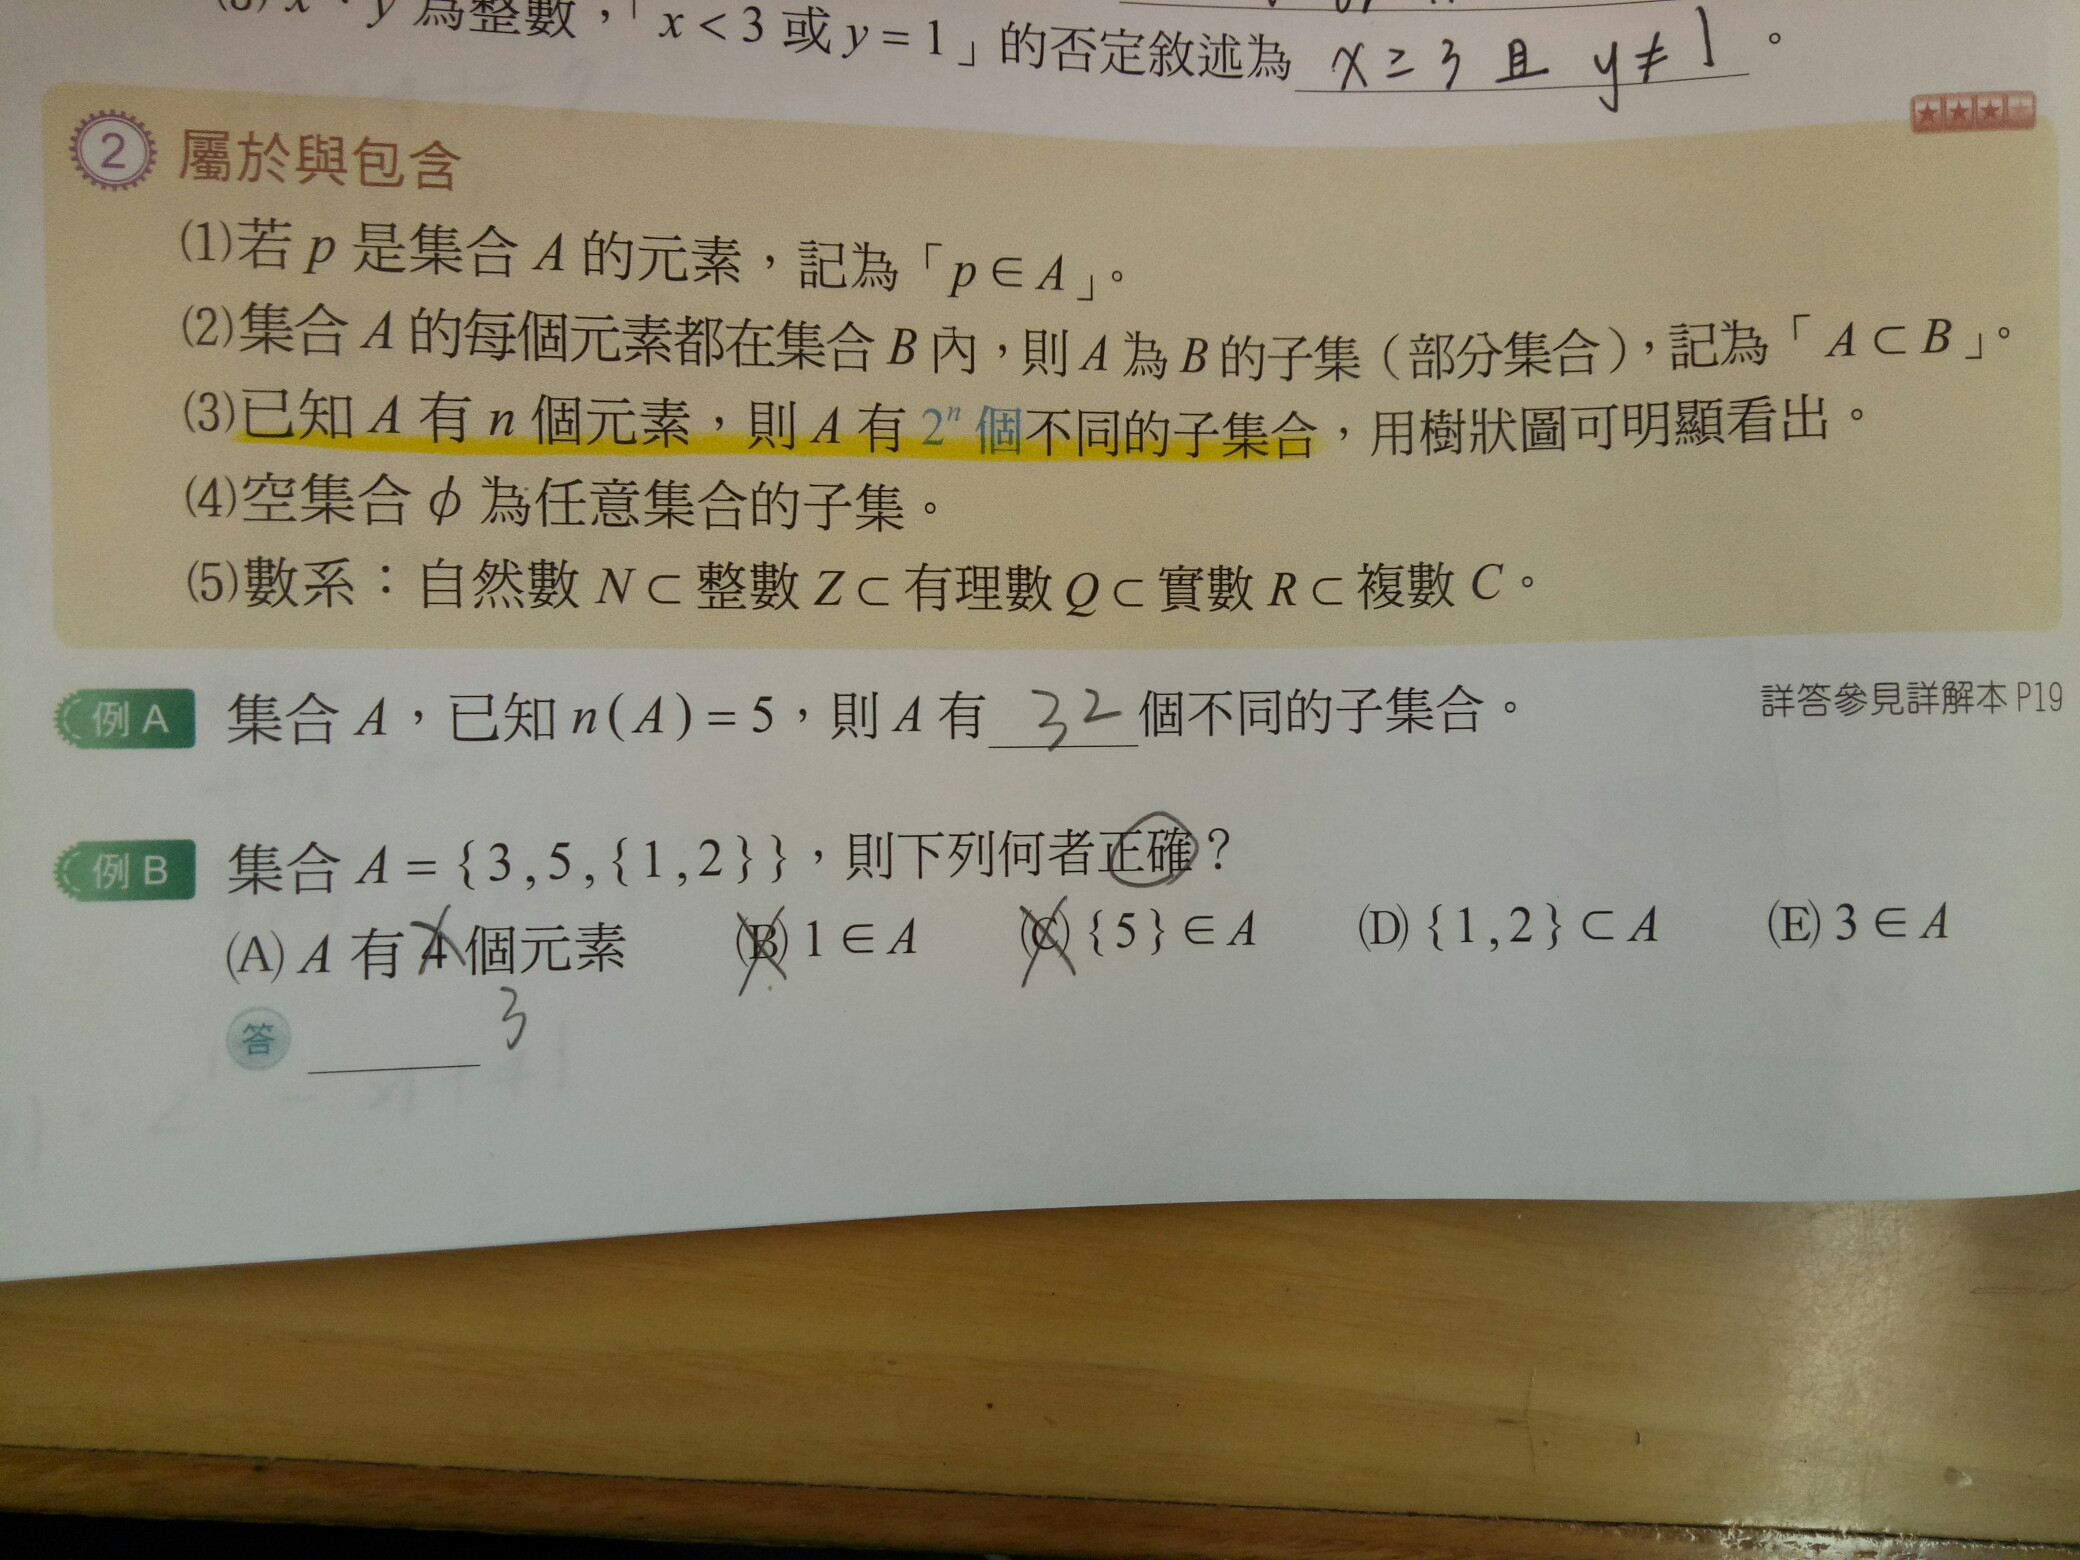 (3) x、y 為整數，「x < 3 或 y = 1」的否定敘述為 x ≥ 3 且 y ≠ 1 。
2 屬於與包含
(1)若 p 是集合 A 的元素，記為「p ∈ A」。
(2)集合 A 的每個元素都在集合 B 內，則 A 為 B 的子集（部分集合），記為「A ⊂ B」。
(3)已知 A 有 n 個元素，則 A 有 2ⁿ 個不同的子集合，用樹狀圖可明顯看出。
(4)空集合 ϕ 為任意集合的子集。
(5)數系：自然數 N ⊂ 整數 Z ⊂ 有理數 Q ⊂ 實數 R ⊂ 複數 C。
例 A 集合 A，已知 n(A) = 5，則 A 有 32 個不同的子集合。 詳答參見詳解本 P19
例 B 集合 A = {3,5,{1,2}}，則下列何者正確？
(A) A 有 4 個元素 (B) 1 ∈ A (C) {5} ∈ A (D) {1,2} ⊂ A (E) 3 ∈ A
3
答